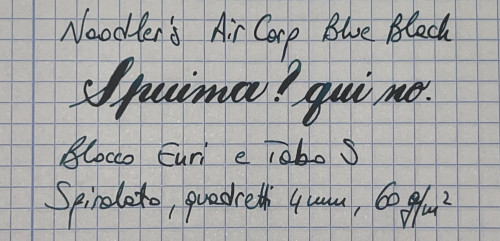 Noodler's Air Corp Blue Black
Spiuma? qui no.
Blocco Euri e Tobo S
Spiralato, quadretti 4mm, 60 g/m²